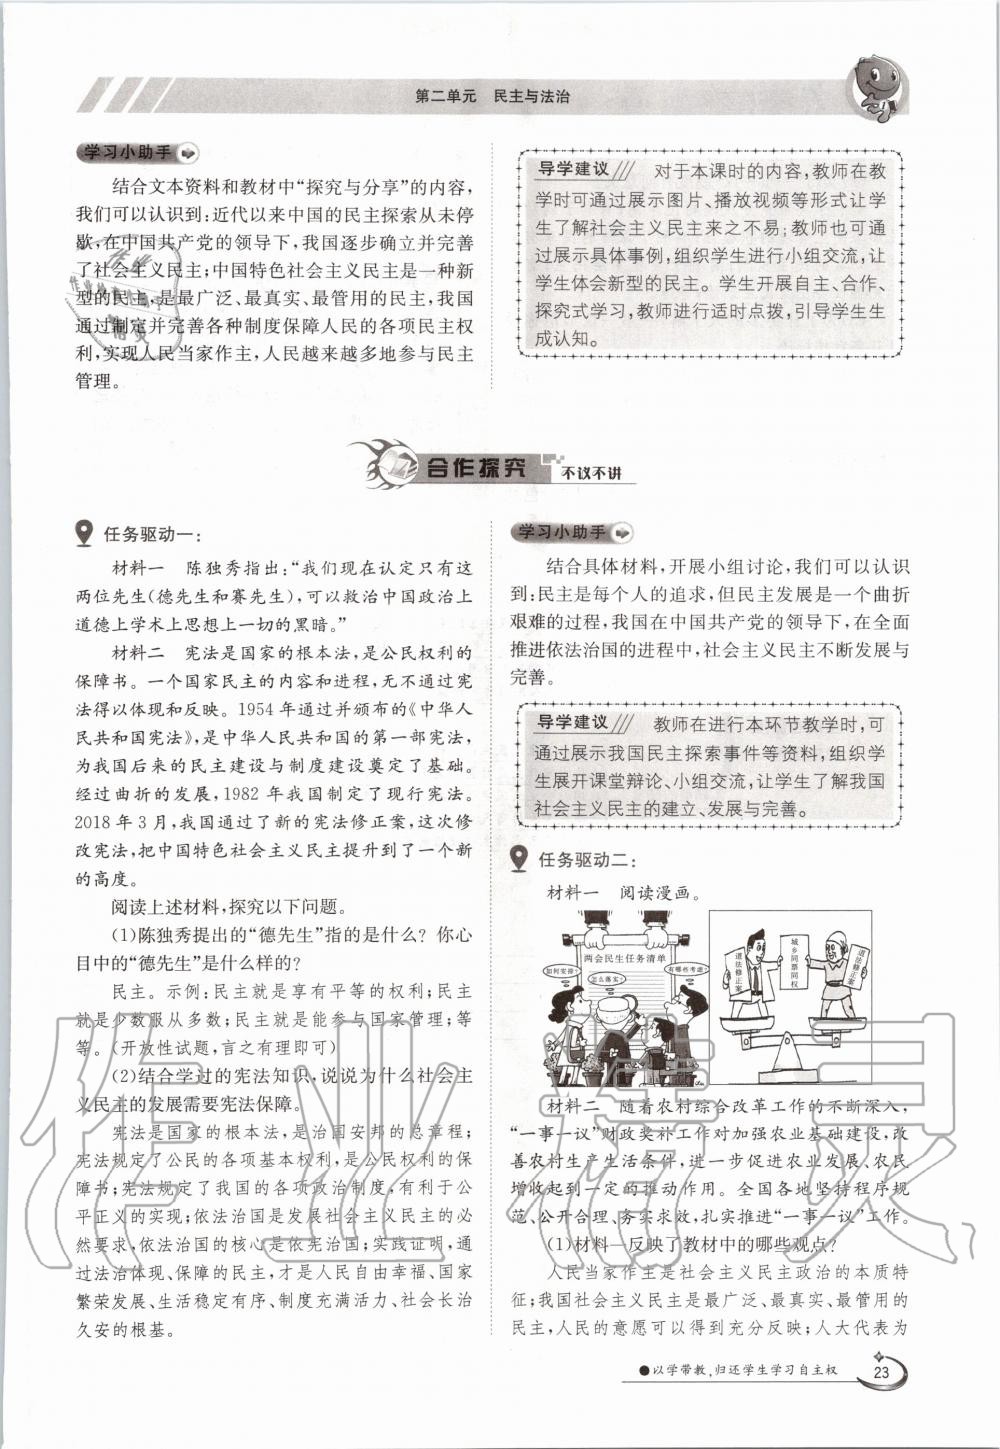 第二单元　民主与法治
学习小助手
结合文本资料和教材中“探究与分享”的内容,
我们可以认识到:近代以来中国的民主探索从未停
歇,在中国共产党的领导下,我国逐步确立并完善
了社会主义民主;中国特色社会主义民主是一种新
型的民主,是最广泛、最真实、最管用的民主,我国
通过制定并完善各种制度保障人民的各项民主权
利,实现人民当家作主,人民越来越多地参与民主
管理。
导学建议　对于本课时的内容,教师在教
学时可通过展示图片、播放视频等形式让学
生了解社会主义民主来之不易;教师也可通
过展示具体事例,组织学生进行小组交流,让
学生体会新型的民主。学生开展自主、合作、
探究式学习,教师进行适时点拨,引导学生生
成认知。
合作探究　不议不讲
任务驱动一:
材料一　陈独秀指出:“我们现在认定只有这
两位先生(德先生和赛先生),可以救治中国政治上
道德上学术上思想上一切的黑暗。”
材料二　宪法是国家的根本法,是公民权利的
保障书。一个国家民主的内容和进程,无不通过宪
法得以体现和反映。1954 年通过并颁布的《中华人
民共和国宪法》,是中华人民共和国的第一部宪法,
为我国后来的民主建设与制度建设奠定了基础。
经过曲折的发展,1982 年我国制定了现行宪法。
2018 年 3 月,我国通过了新的宪法修正案,这次修
改宪法,把中国特色社会主义民主提升到了一个新
的高度。
阅读上述材料,探究以下问题。
(1)陈独秀提出的“德先生”指的是什么? 你心
目中的“德先生”是什么样的?
民主。示例:民主就是享有平等的权利;民主
就是少数服从多数;民主就是能参与国家管理;等
等。(开放性试题,言之有理即可)
(2)结合学过的宪法知识,说说为什么社会主
义民主的发展需要宪法保障。
宪法是国家的根本法,是治国安邦的总章程;
宪法规定了公民的各项基本权利,是公民权利的保
障书;宪法规定了我国的各项政治制度,有利于公
平正义的实现;依法治国是发展社会主义民主的必
然要求,依法治国的核心是依宪治国;实践证明,通
过法治体现、保障的民主,才是人民自由幸福、国家
繁荣发展、生活稳定有序、制度充满活力、社会长治
久安的根基。
学习小助手
结合具体材料,开展小组讨论,我们可以认识
到:民主是每个人的追求,但民主发展是一个曲折
艰难的过程,我国在中国共产党的领导下,在全面
推进依法治国的进程中,社会主义民主不断发展与
完善。
导学建议　教师在进行本环节教学时,可
通过展示我国民主探索事件等资料,组织学
生展开课堂辩论、小组交流,让学生了解我国
社会主义民主的建立、发展与完善。
任务驱动二:
材料一　阅读漫画。
两会民生任务清单
如何安排?
怎么落实?
有哪些考虑?
选法修正案
城乡同票同权
选法修正案
材料二　随着农村综合改革工作的不断深入,
“一事一议”财政奖补工作对加强农业基础建设,改
善农村生产生活条件,进一步促进农业发展、农民
增收起到一定的推动作用。全国各地坚持程序规
范、公开合理、务实求效,扎实推进“一事一议”工作。
(1)材料一反映了教材中的哪些观点?
人民当家作主是社会主义民主政治的本质特
征;我国社会主义民主是最广泛、最真实、最管用的
民主,人民的意愿可以得到充分反映;人大代表为
●以学带教,归还学生学习自主权
23
作业精灵